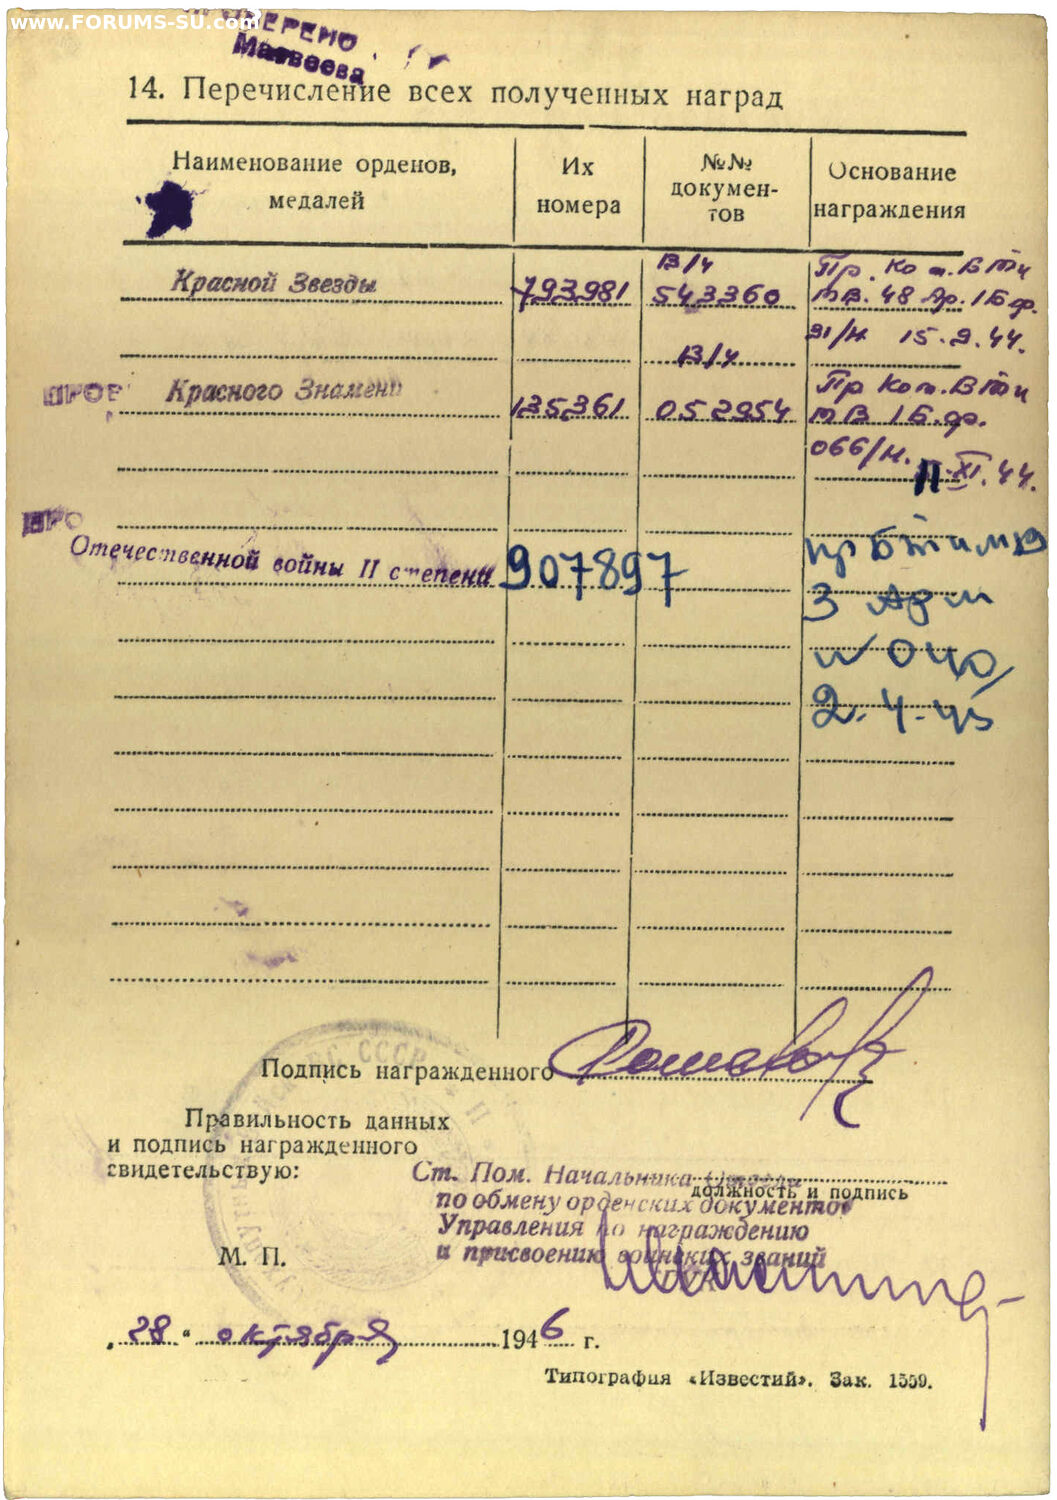 www.FORUMS-SU.com
ПРОВЕРЕНО
Матвеева
14. Перечисление всех полученных наград
Наименование орденов, медалей
Их номера
№№ документов
Основание награждения
Красной Звезды 793981 В/ч 543360 Пр. Ком. БТ и
МВ. 48 Ар. 1 Б.ф.
31/н 15.9.44.
Красного Знамени 135361 В/ч 052954 Пр Ком. БТ и
МВ 1 Б.ф.
066/н. 11.XI.44.
Отечественной войны II степени 907897 пр БТ и МВ
3 Арм
№ 040/
2.4.45
Подпись награжденного
Правильность данных
и подпись награжденного
свидетельствую:
Ст. Пом. Начальника Отдела
должность и подпись
по обмену орденских документов
Управления по награждению
и присвоению воинских званий
М. П.
„28“ октября 1946 г.
Типография «Известий». Зак. 1559.